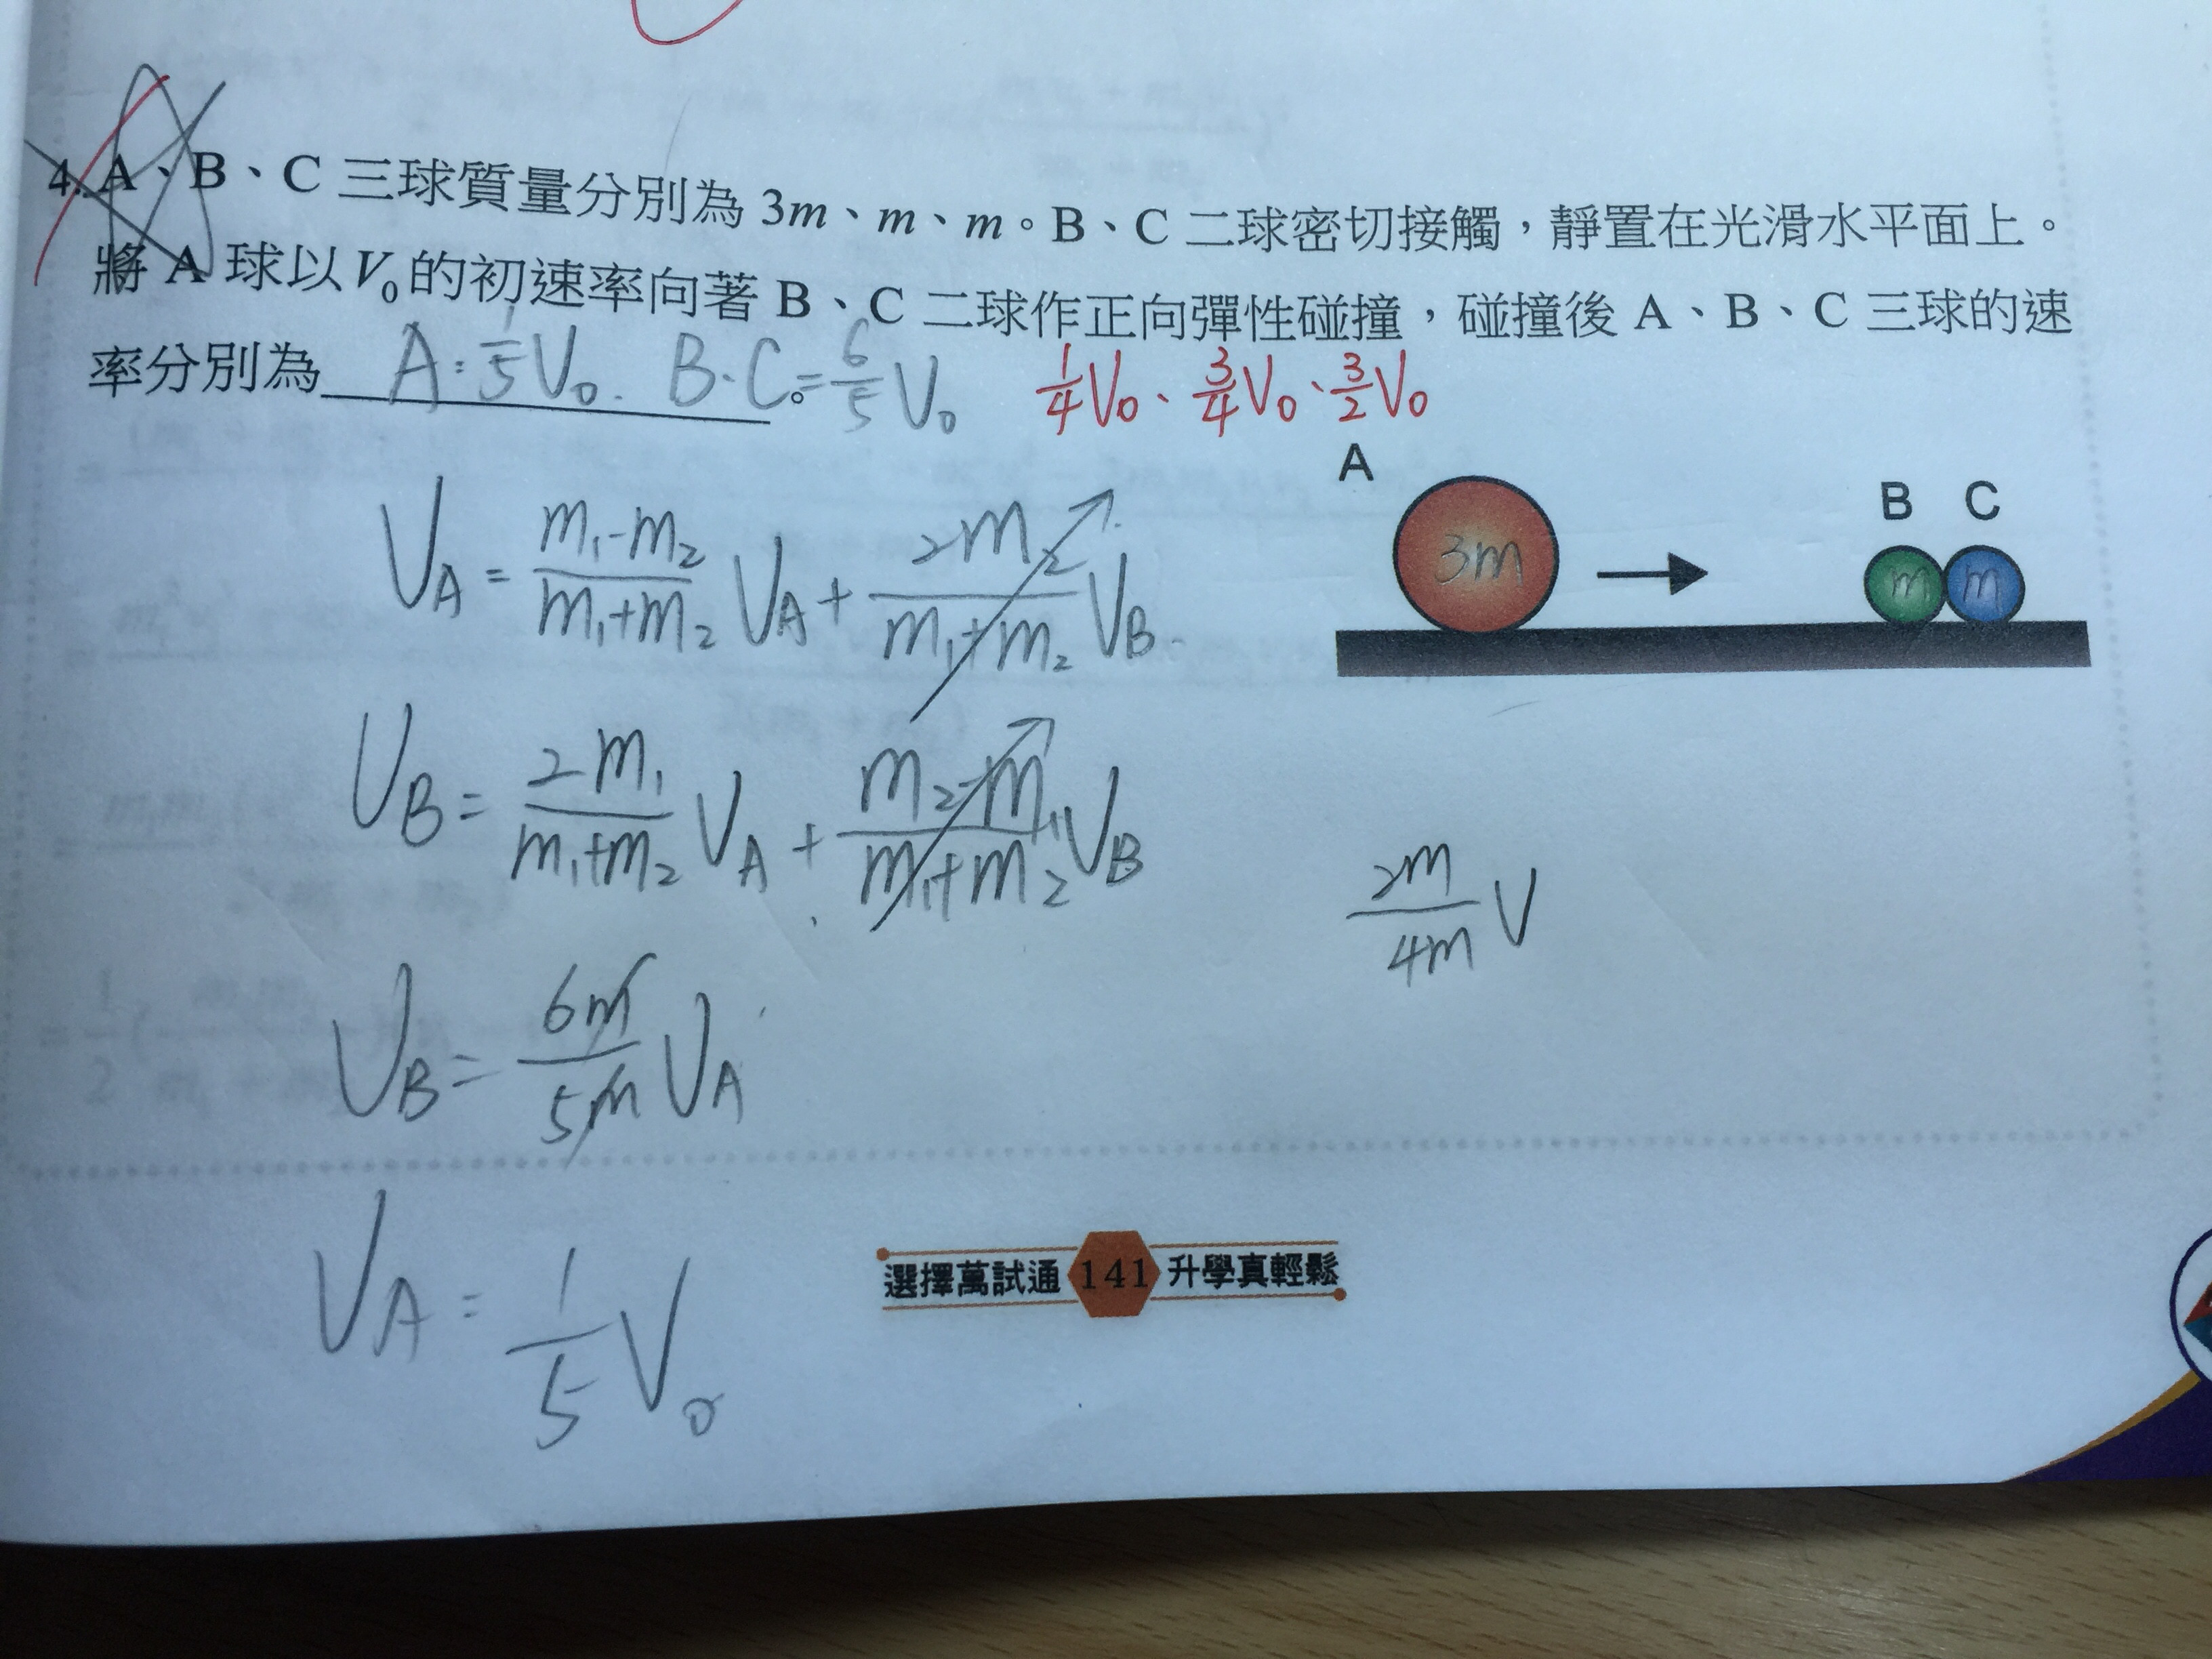 4. A、B、C 三球質量分別為 3m、m、m。B、C 二球密切接觸，靜置在光滑水平面上。
將 A 球以 V₀ 的初速率向著 B、C 二球作正向彈性碰撞，碰撞後 A、B、C 三球的速
率分別為 A：1/5 V₀. B.C。= 6/5 V₀ 1/4 V₀、3/4 V₀、3/2 V₀
A
B C
3m m m
V_A = (m₁-m₂)/(m₁+m₂) V_A + 2m₂/(m₁+m₂) V_B
V_B = 2m₁/(m₁+m₂) V_A + (m₂-m₁)/(m₁+m₂) V_B
2m/4m V
V_B = 6m/5m V_A
V_A = 1/5 V₀
選擇萬試通 141 升學真輕鬆